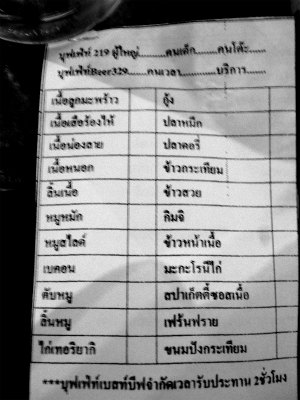 บุฟเฟ่ท์ 219 ผู้ใหญ่.........คนเด็ก.........คนโต๊ะ......
บุฟเฟ่ท์Beer329.......คนเวลา..............บริการ.......
เนื้อลูกมะพร้าว กุ้ง
เนื้อเสือร้องไห้ ปลาหมึก
เนื้อน่องลาย ปลาดอรี่
เนื้อหนอก ข้าวกระเทียม
ลิ้นเนื้อ ข้าวสวย
หมูหมัก กิมจิ
หมูสไลด์ ข้าวหน้าเนื้อ
เบคอน มะกะโรนีไก่
ตับหมู สปาเก็ตตี้ซอสเนื้อ
ลิ้นหมู เฟร้นฟราย
ไก่เทอริยากิ ขนมปังกระเทียม
***บุฟเฟ่ท์เบสท์บีฟจำกัดเวลารับประทาน 2ชั่วโมง